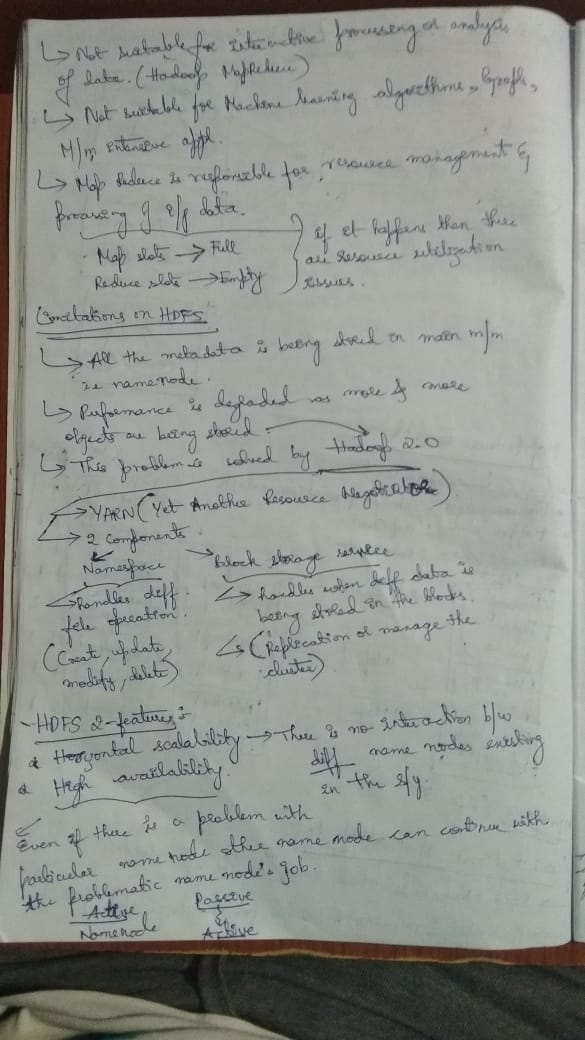 ↳ Not suitable for interactive processing or analysis
of data. (Hadoop MapReduce)
↳ Not suitable for Machine learning algorithms, Graphs,
M/m intensive appl.
↳ Map Reduce is responsible for resource management &
processing of data.
Map slots → Full
Reduce slots → Empty
if it happens then there
are resource utilization
issues.
Limitations on HDFS
↳ All the metadata is being stored in main m/m
ie namenode.
↳ Performance is degraded as more & more
objects are being stored.
↳ This problem is solved by Hadoop 2.0
→ YARN (Yet Another Resource Negotiator)
→ 2 components
Namespace
↳ handles diff
file operation.
(Create, update,
modify, delete)
Block storage service
↳ handles when diff data is
being stored in the blocks.
↳ (Replication or manage the
cluster)
- HDFS 2-features:-
* Horyontal scalability → There is no interaction b/w
diff name nodes existing
in the s/y.
* High availability.
Even if there is a problem with
particular name node other name node can continue with
the problematic name node's job.
Active Passive
Namenode Active